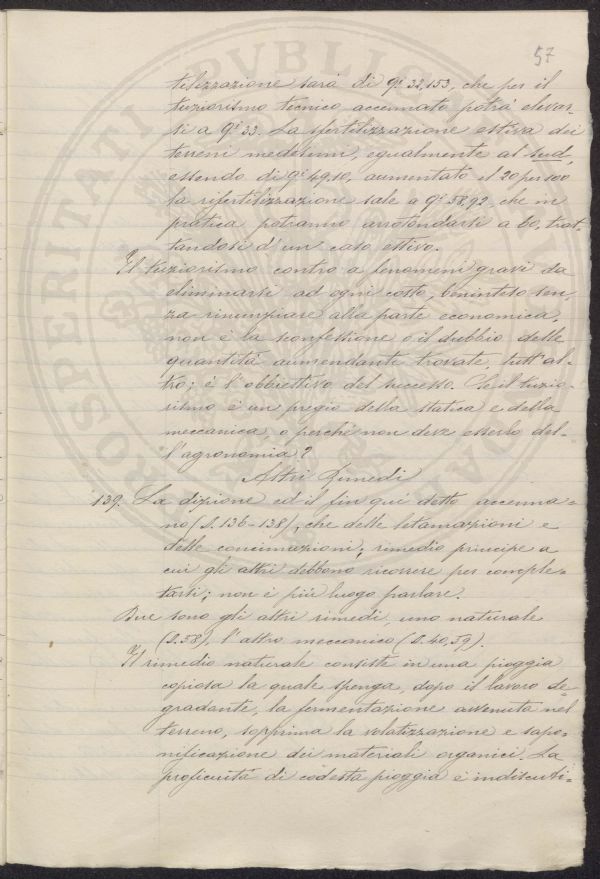 57
telizzazione sarà di qⁱ 32,153, che per il
tuziorismo tecnico accennato potrà elevar-
si a qⁱ 33. La sfertilizzazione estiva dei
terreni medesimi, egualmente al sud,
essendo di qⁱ 49,10, aumentato il 20 per 100
la rifertilizzazione sale a qⁱ 58,92, che in
pratica potranno arrotondarsi a 60, trat-
tandosi d'un caso estivo.
Il tuziorismo contro a fenomeni gravi da
eliminarsi ad ogni costo, beninteso sen-
za rinunziare alla parte economica,
non è la sconfessione o il dubbio delle
quantità aumendante trovate, tutt'al-
tro; è l'obbiettivo del successo. Se il tuzio-
rismo è un pregio della statica e della
meccanica, o perchè non deve esserlo del-
l'agronomia?
Altri Rimedi
139. La dizione ed il fin quì detto accenna-
no (§. 136-138), che delle letamazioni e
delle concimazioni; rimedio principe a
cui gli altri debbono ricorrere per comple-
tarsi; non è più luogo parlare.
Due sono gli altri rimedi, uno naturale
(§. 58), l'altro meccanico (§. 40, 59).
Il rimedio naturale consiste in una pioggia
copiosa la quale spenga, dopo il lavoro de-
gradante, la fermentazione avvenuta nel
terreno, sopprima la volatizzazione e sapo-
nificazione dei materiali organici. La
proficuità di codesta pioggia è indiscuti-
PROSPERITATI PVBLICAE